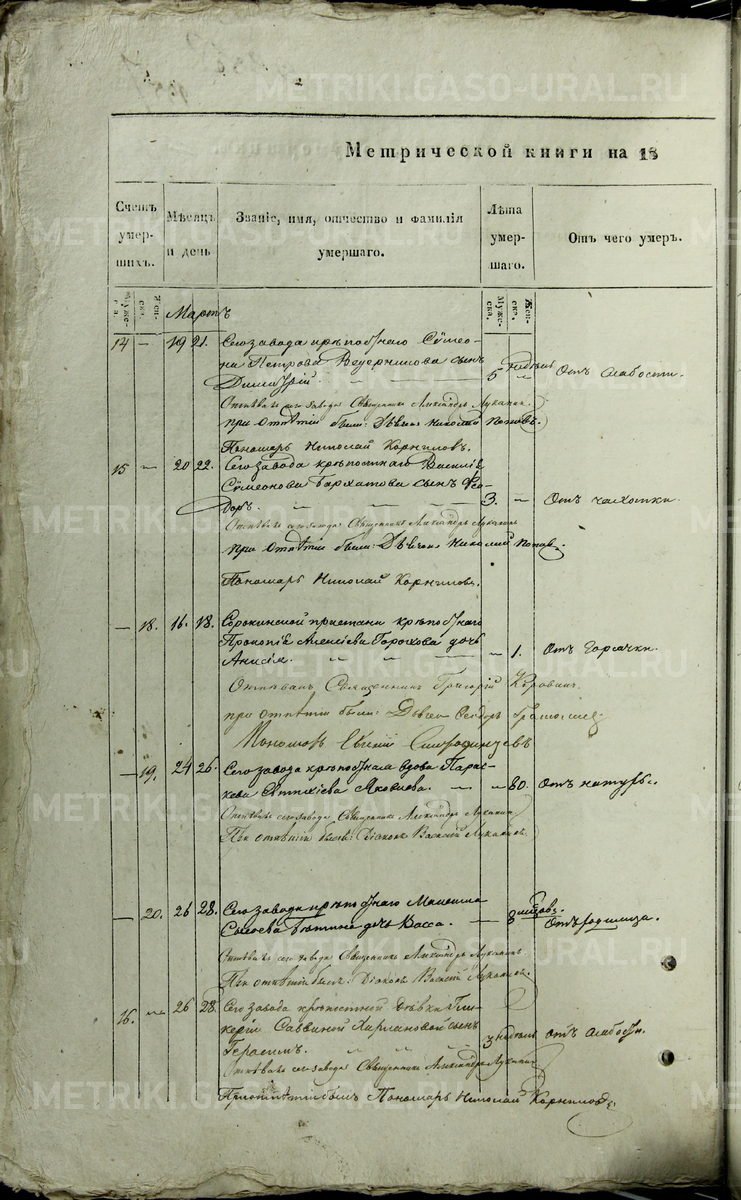 Метрической книги на 18
Счетъ умер-шихъ.
Мѣсяцъ и день
Званіе, имя, отчество и фамилія умершаго.
Лѣта умер-шаго.
Отъ чего умеръ.
Муже-ска.
Жен-ска.
Муже-ска.
Жен-ска.
Мартъ
14 — 19 21. Сего завода крѣпостнаго Сѵмео-
на Петрова Ведерникова сынъ
Димитрій. 5 недѣль Отъ слабости.
Отпѣвалъ сего завода Священникъ Александръ Луканин
при отпѣтіи были: Дьячекъ Николай Поповъ.
Пономарь Николай Корниловъ.
15 — 20 22. Сего завода крѣпостнаго Василія
Сѵмеонова Бархатова сынъ Ѳео-
доръ. 3. — Отъ чахотки.
Отпѣвалъ сего завода Священникъ Александръ Луканин
при отпѣтіи были: Дьячекъ Николай Попов
Пономарь Николай Корниловъ.
— 18. 16. 18. Сорокинской пристани крѣпостнаго
Прокопія Алексіева Горохова дочь
Анисія. — 1. Отъ горячки.
Отпѣвалъ Священникъ Григорій
при отпѣтіи были: Дьячекъ Ѳеодоръ
— 19. 24 26. Сего завода крѣпостная вдова Парас-
кева Яковлева. — 80. Отъ натуры.
Отпѣвалъ сего завода Священникъ Александръ Луканин
При отпѣтіи былъ: Діаконъ Василій Луканинъ.
— 20. 26 28. Сего завода крѣпостнаго
дочь Васса. — 3 мѣсяцов. Отъ родимца.
Отпѣвалъ сего завода Священникъ Александръ Луканинъ
При отпѣтіи былъ: Діаконъ Василій Луканинъ.
16. — 26 28. Сего завода крѣпостной дѣвки Гли-
керіи Саввиной сынъ
Герасимъ. 3 недѣль отъ слабости.
Отпѣвалъ сего завода Священникъ Александръ Луканин
При отпѣтіи былъ Пономарь Николай Корниловъ
METRIKI.GASO-URAL.RU